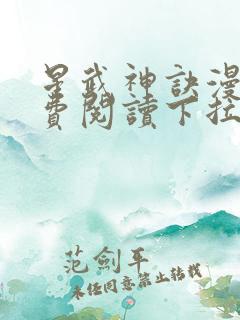 星武神訣漫
費閱讀下拉
范劍平
未經同意禁止轉載